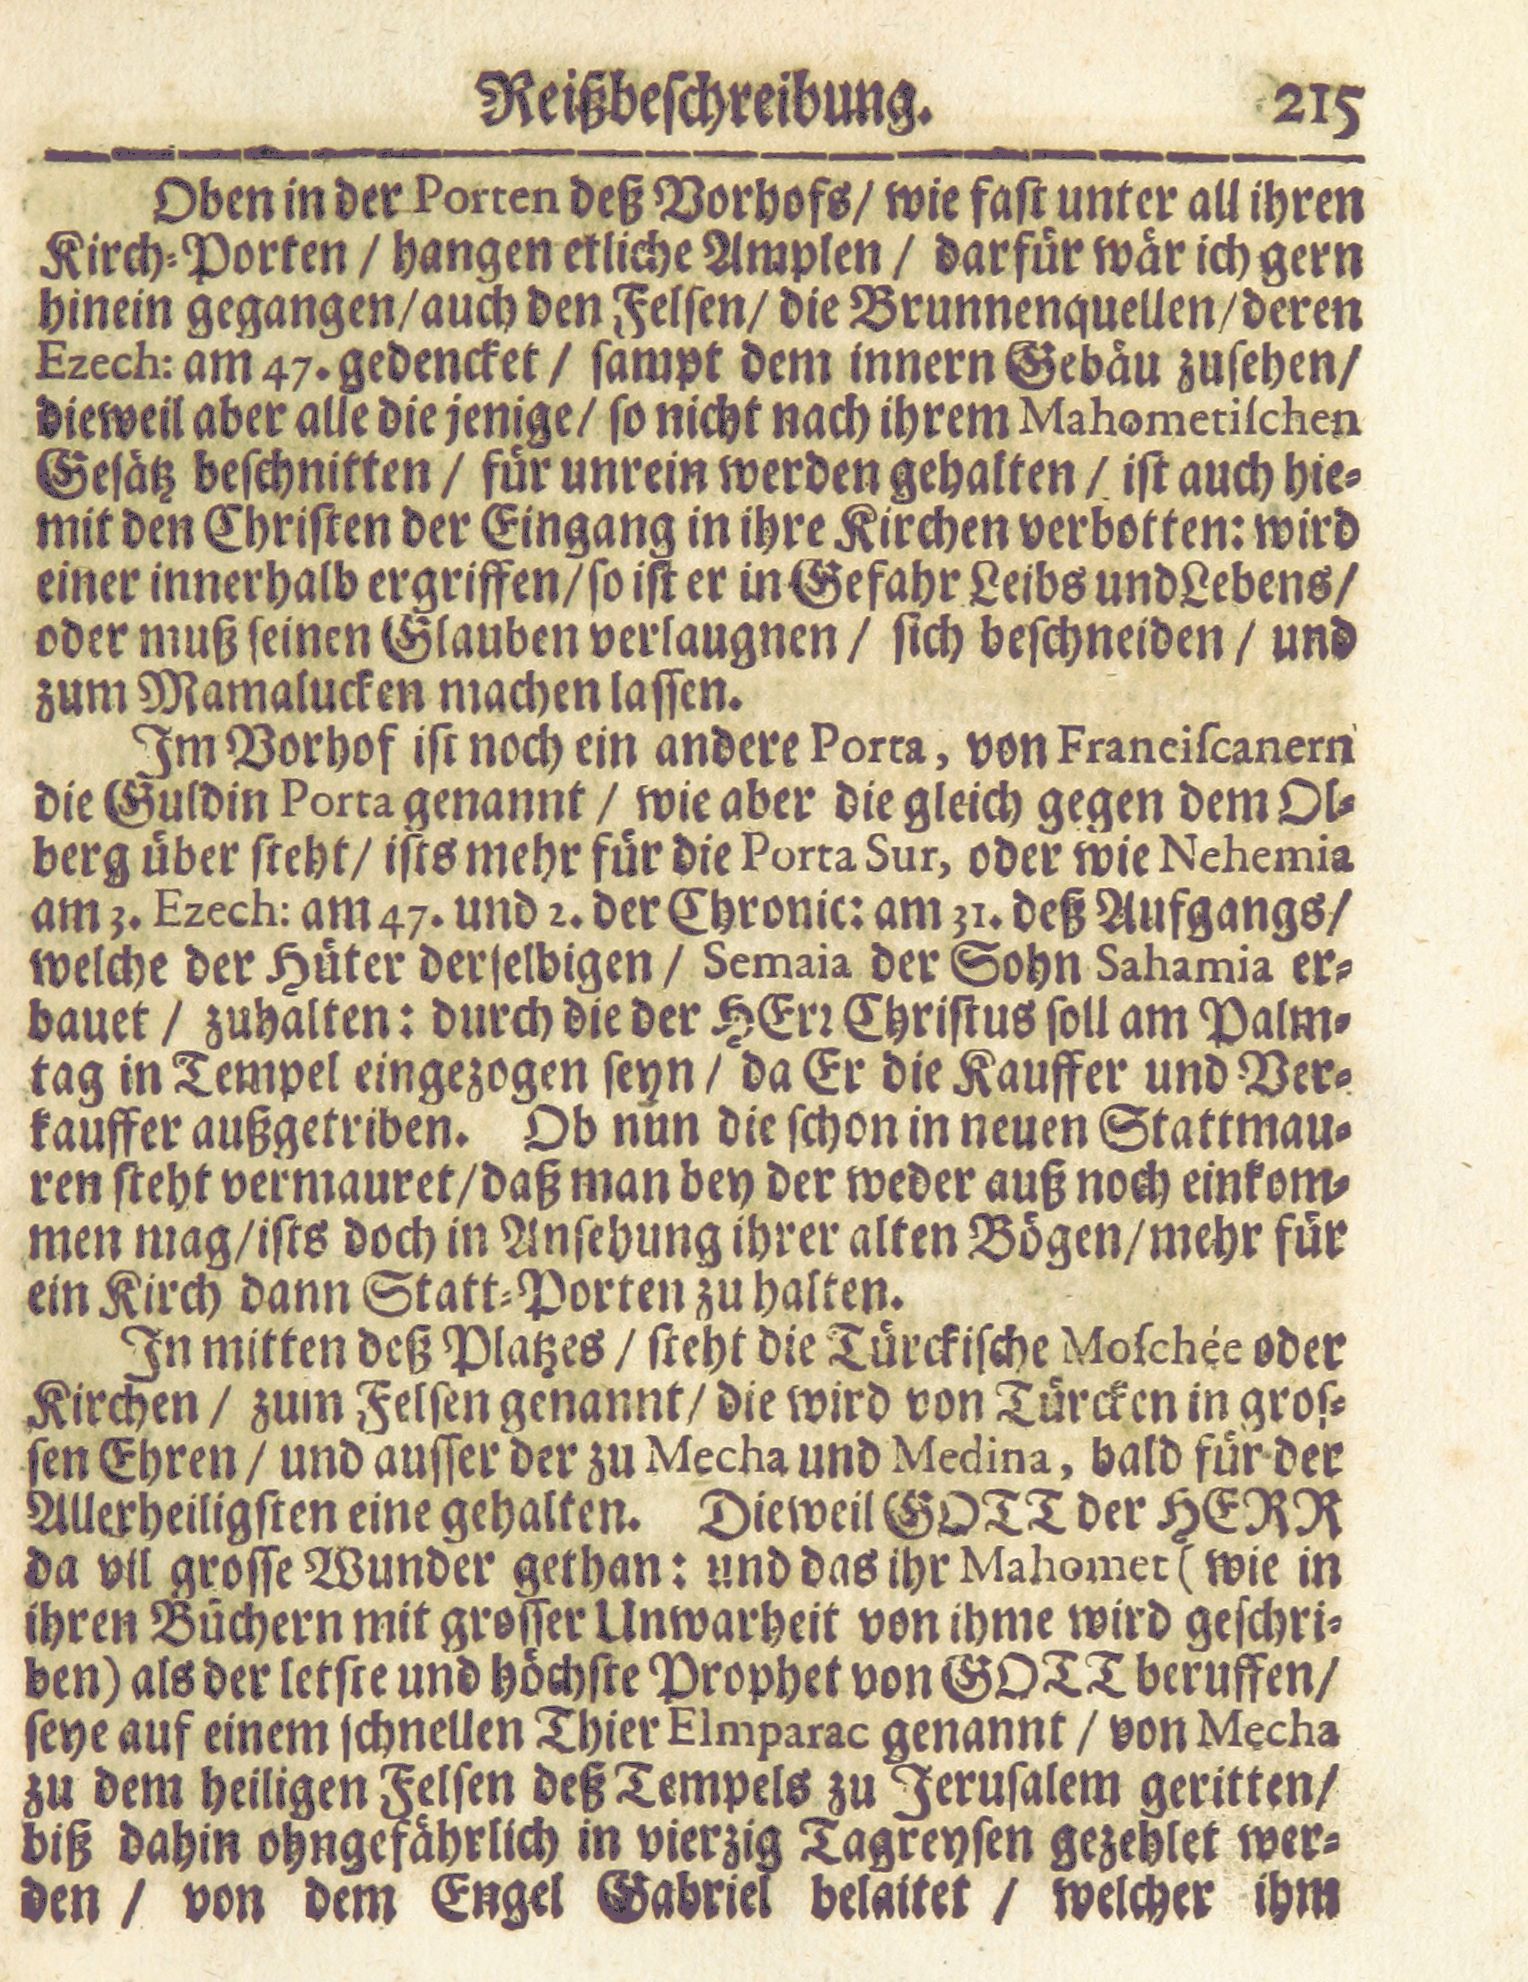 Reißbeschreibung. 215
Oben in der Porten deß Vorhofs/ wie fast unter all ihren
Kirch-Porten / hangen etliche Amplen / darfür wär ich gern
hinein gegangen/auch den Felsen/ die Brunnenquellen/deren
Ezech: am 47. gedencket / sampt dem innern Gebäu zusehen/
dieweil aber alle die jenige/ so nicht nach ihrem Mahometischen
Gesätz beschnitten / für unrein werden gehalten / ist auch hie-
mit den Christen der Eingang in ihre Kirchen verbotten: wird
einer innerhalb ergriffen/so ist er in Gefahr Leibs und Lebens/
oder muß seinen Glauben verlaugnen / sich beschneiden / und
zum Mamalucken machen lassen.
Im Vorhof ist noch ein andere Porta, von Franciscanern
die Guldin Porta genannt / wie aber die gleich gegen dem Ol-
berg über steht/ ists mehr für die Porta Sur, oder wie Nehemia
am 3. Ezech: am 47. und 2. der Chronic: am 31. deß Aufgangs/
welche der Hüter derselbigen / Semaia der Sohn Sahamia er-
bauet / zuhalten: durch die der HErr Christus soll am Palm-
tag in Tempel eingezogen seyn / da Er die Kauffer und Ver-
kauffer außgetriben. Ob nun die schon in neuen Stattmau-
ren steht vermauret/daß man bey der weder auß noch einkom-
men mag/ists doch in Ansehung ihrer alten Bögen/mehr für
ein Kirch dann Statt-Porten zu halten.
In mitten deß Platzes / steht die Türckische Moschée oder
Kirchen / zum Felsen genannt/ die wird von Türcken in gros-
sen Ehren / und ausser der zu Mecha und Medina, bald für der
Allerheiligsten eine gehalten. Dieweil GOTT der HERR
da vil grosse Wunder gethan: und das ihr Mahomet ( wie in
ihren Büchern mit grosser Unwarheit von ihme wird geschri-
ben) als der letste und höchste Prophet von GOTT beruffen/
seye auf einem schnellen Thier Elmparac genannt / von Mecha
zu dem heiligen Felsen deß Tempels zu Jerusalem geritten/
biß dahin ohngefährlich in vierzig Tagreysen gezehlet wer-
den / von dem Engel Gabriel belaitet / welcher ihm